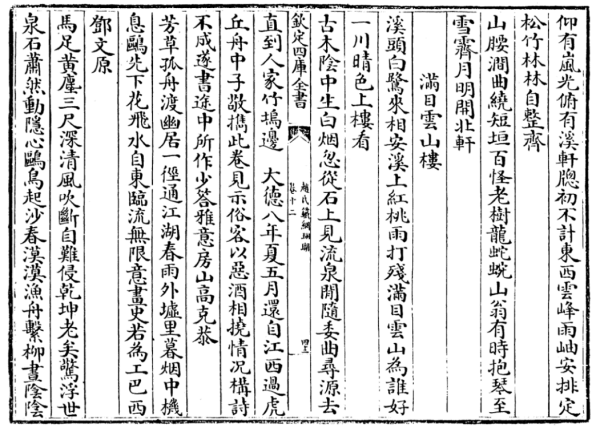 仰有嵐光俯有溪軒牕初不計東西雲峰雨岫安排定
松竹林林自整齊
山腰澗曲繞短垣百怪老樹龍蛇蜿山翁有時抱琴至
雪霽月明開北軒
滿目雲山樓
溪頭白鷺來相安溪上紅桃雨打殘滿目雲山為誰好
一川晴色上樓看
古木陰中生白烟忽從石上見流泉閒隨委曲尋源去
欽定四庫全書
卷十二
趙氏鐵網珊瑚
四三
直到人家竹塢邊 大德八年夏五月還自江西過虎
丘舟中子敬攜此卷見示俗客以惡酒相撓情况構詩
不成遂書途中所作少答雅意房山高克恭
芳草孤舟渡幽居一徑通江湖春雨外墟里暮烟中機
息鷗先下花飛水自東臨流無限意畫史若為工巴西
鄧文原
馬足黄塵三尺深清風吹斷自難侵乾坤老矣驚浮世
泉石蕭然動隱心鷗鳥起沙春漠漠漁舟繫柳晝陰陰